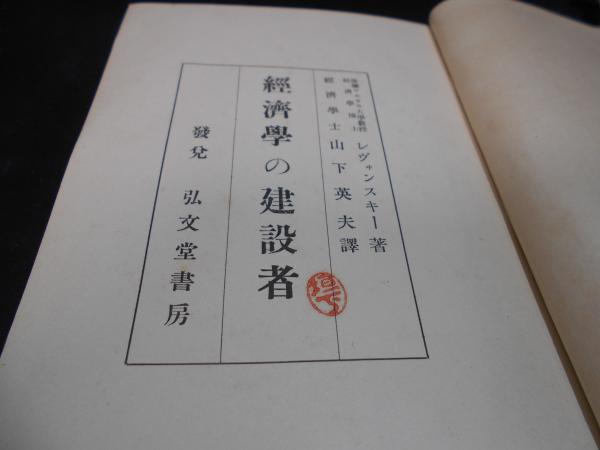 經濟學博士 レヴァンスキー 著
經濟學士 山下英夫 譯
經濟學の建設者
發兌 弘文堂書房